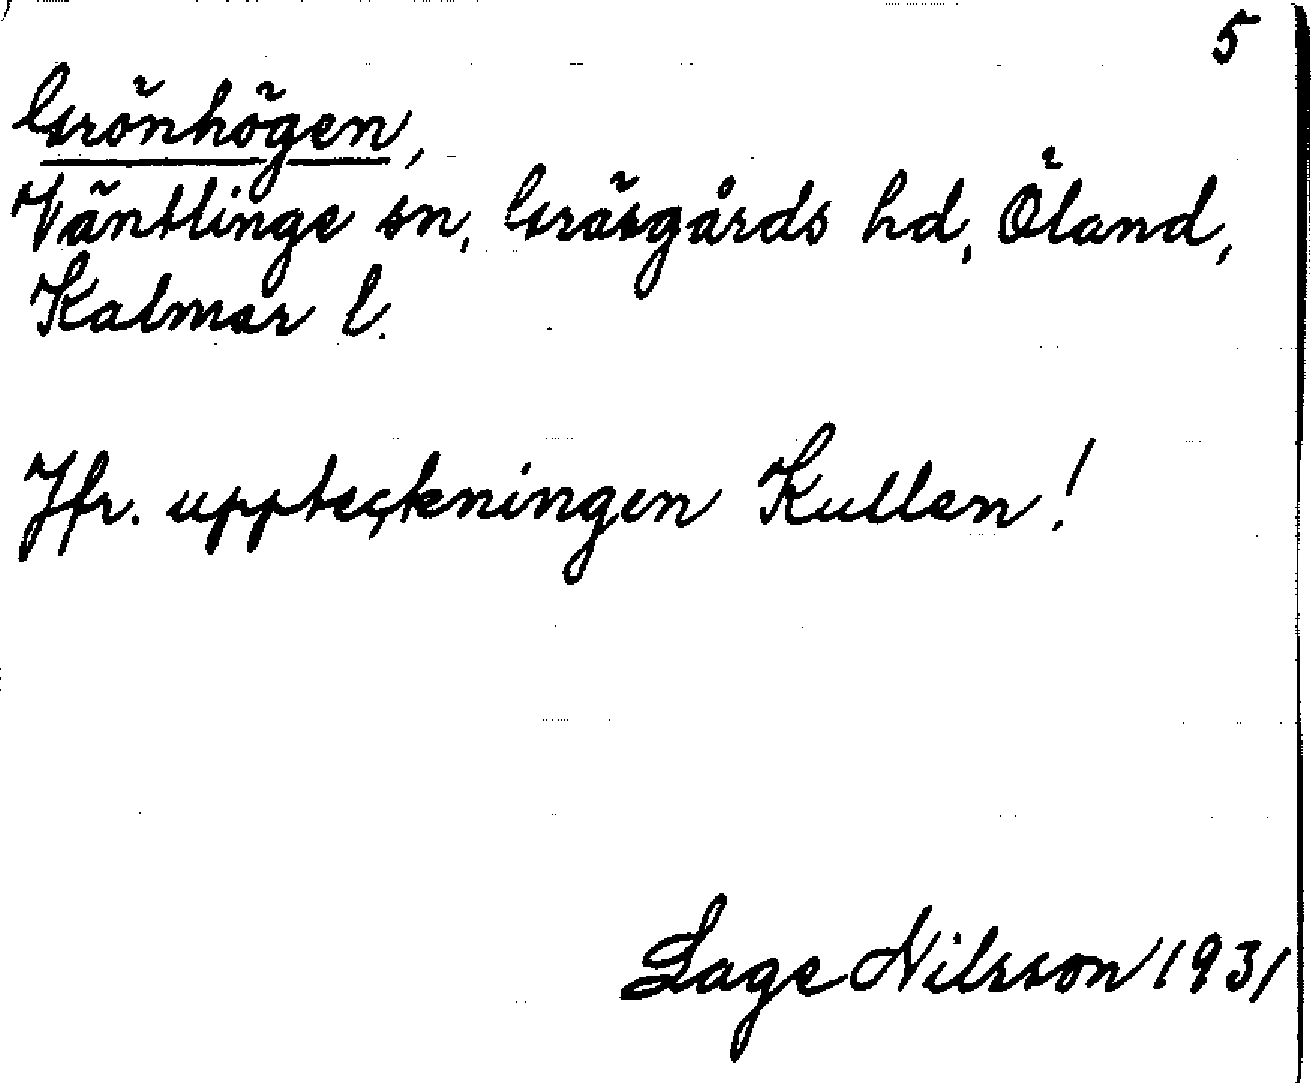 5
Grönhögen,
Väntlinge sn, Gräsgårds hd, Öland,
Kalmar l.
Jfr. uppteckningen Kullen!
Lage Nilsson 1931